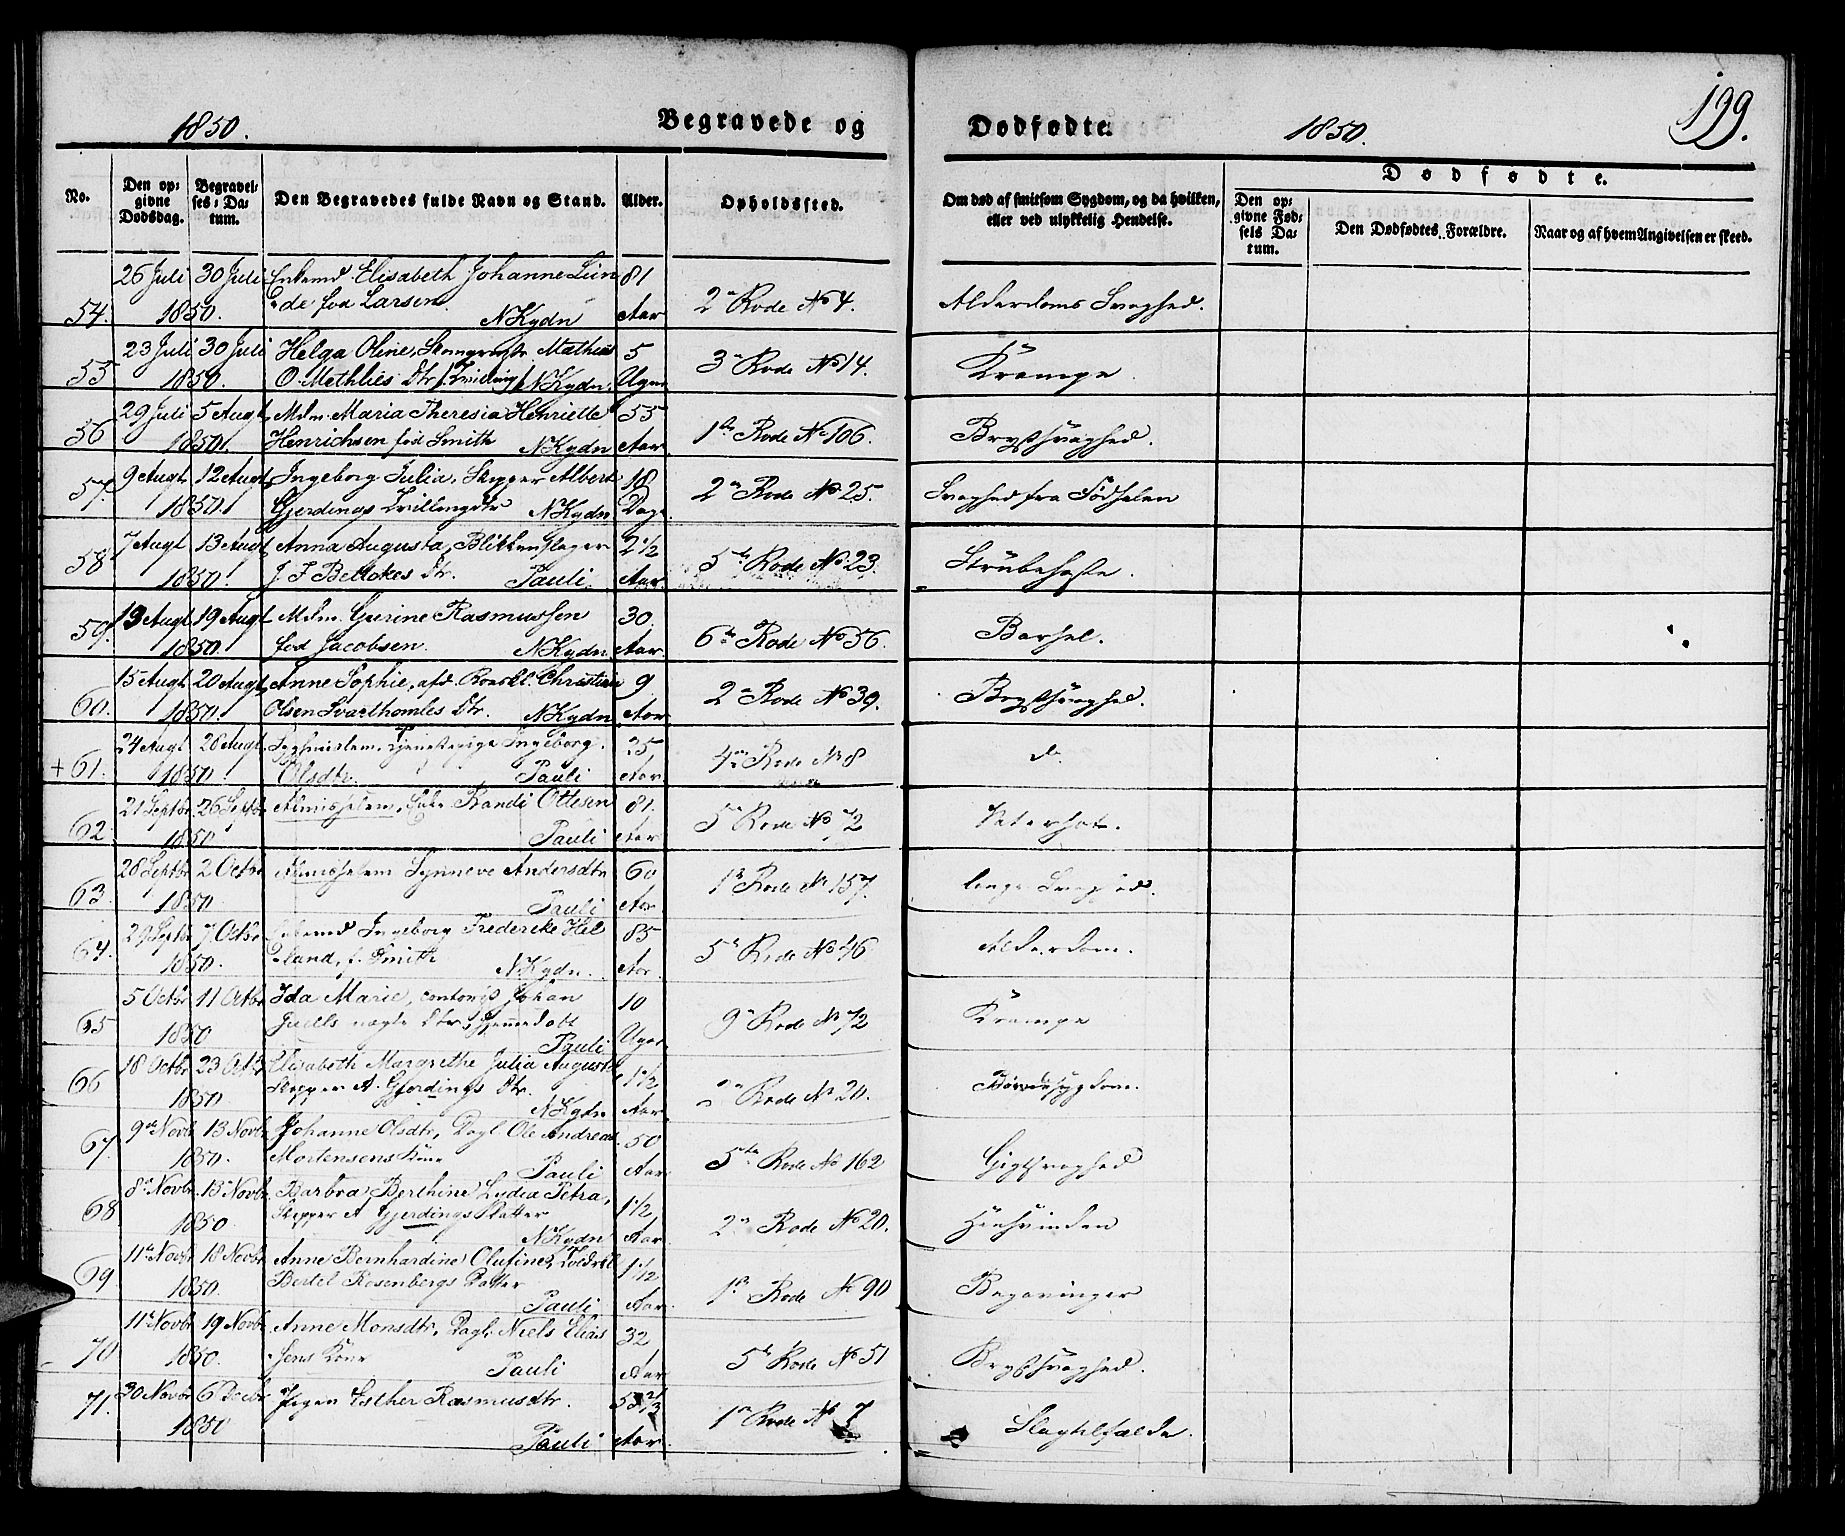 1850. Begravede og Dødfødte. 1850. 199.
No. Den opgivne Dødsdag. Begravelses-Datum. Den Begravedes fulde Navn og Stand. Alder. Opholdssted. Om død af smitsom Sygdom, og da hvilken, eller ved ulykkelig Hendelse. Dødfødte.
Den opgivne Fødsels Datum. Den Dødfødtes Forældre. Naar og af hvem Angivelsen er skeed.
26 Juli 30 Juli Enkemd. Elisabeth Johanne 81
54. 1850. fød Larsen NKgdn Aar 2 Rode No 4. Alderdoms Svaghed.
23 Juli 30 Juli Helga Oline, Mathias 5
55 1850. O. Methlies Dtr NKgdn. Uger 3 Rode No 14. Krampe
29 Juli 5 Augt Mdm. Maria Theresia Henriette 55
56 1850. Henrichsen fød Smith NKgdn Aar 1ste Rode No 106. Brystsvaghed.
9 Augt 12 Augt Ingeborg Julia, Skipper Albert 18
57. 1850. Gjerdings Tvillingdtr NKgdn Dage 2 Rode No 25. Svaghed fra Fødselen
7 Augt 13 Augt Anna Augusta, Blikkenslager 2 1/2
58 1850. J. F. Dtr. Pauli. Aar 5te Rode No 23. Strubehoste.
13 Augt 19 Augt Mdm. Gurine Rasmussen 30.
59. 1850. fød Jacobsen. NKgdn Aar. 6te Rode No 56. Barsel.
15 Augt 20 Augt Anne Sophie, afd. Christian 9
60. 1850. Olsen Dtr. NKgdn Aar 2 Rode No 39. Brystsvaghed.
24 Augt 28 Augt Tjenestepige Ingeborg 25
+ 61. 1850. Olsdtr. Pauli Aar 4 Rode No 8 do
21 Septbr 26 Septbr Almisselem, Enke Randi Ottesen 81.
62. 1850 Pauli Aar 5 Rode No 72
28 Septbr 2 Octbr Almisselem Synneve Andersdtr 60
63. 1850. Pauli Aar 1ste Rode No 157. lang Svaghed.
29 Septbr 7 Octbr Enkemd Ingeborg Frederike Hel 85
64. 1850. land, f. Smith NKgdn. Aar. 5te Rode No 46 Alderdom.
5 Octbr 11 Octbr Ida Marie, Johan 10
65 1850 Juells ægte Dtr, hjemmedøbt Pauli Uger 9 Rode No 72 Krampe
18 Octbr 23 Octbr Elisabeth Margrethe Julia Augusta 1 1/2
66 1850 Skipper A. Gjerdings Dtr. NKgdn Aar. 2 Rode No 20.
9 Novbr 13 Novbr Johanne Olsdtr, Dagl. Ole Andreas 50
67. 1850. Mortensens Kone Pauli Aar 5te Rode No 162 Gigtsvaghed
8 Novbr 13 Novbr Barbra Berthine Lydia Petra, 1 1/2
68 1850. Skipper A Gjerdings Datter NKgdn Aar. 2 Rode No 20.
11 Novbr 18 Novbr Anne Bernhardine Olufine, 1 1/2
69 1850. Bertel Rosenbergs Datter Pauli Aar. 1ste Rode No 90
11 Novbr 19 Novbr Anne Monsdtr, Dagl. Niels Elias 32
70 1850. Kone Pauli Aar 5te Rode No 51 Brystsvaghed.
30 Novbr 6 Decbr Esther Rasmusdtr.
71. 1850 Pauli Aar. 1 Rode No 7 Slagtilfælde.